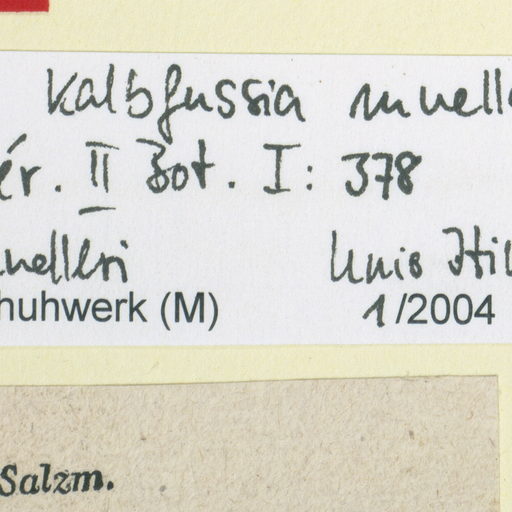 Kalbfussia muell
ér. II Bot. I: 378
uelleri Unio Itin
huhwerk (M) 1/2004
Salzm.